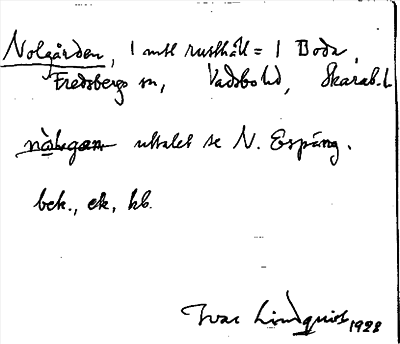 Nolgården, 1 mtl rusthåll = 1 Boda,
Fredsbergs sn, Vadsbo hd, Skarab. l.
uttalet se N. Espång.
bek., ek, hb.
Ivar Lindquist 1928